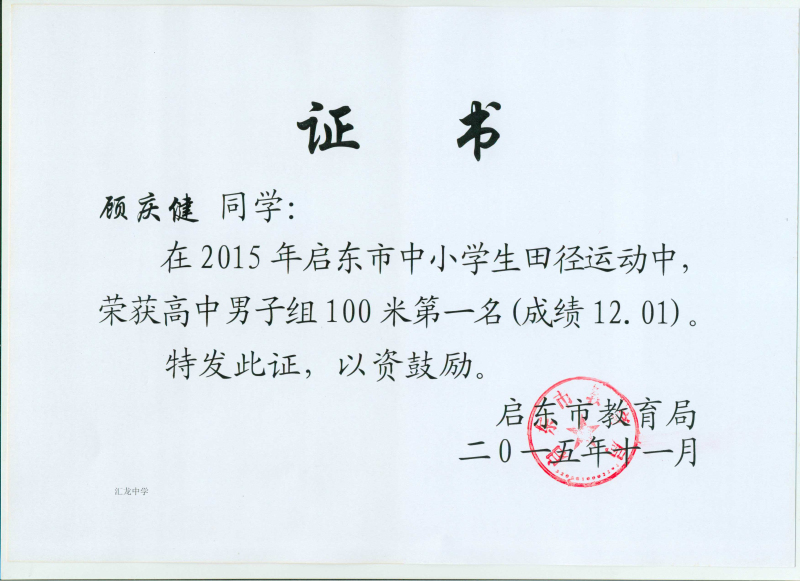 证 书
顾庆健 同学:
在2015年启东市中小学生田径运动中,
荣获高中男子组100米第一名(成绩12.01)。
特发此证, 以资鼓励。
启东市教育局
二0一五年十一月
汇龙中学